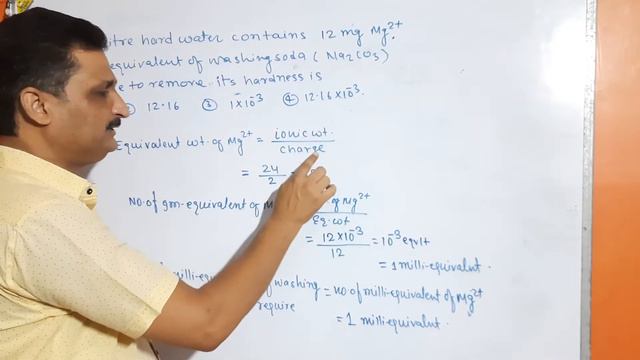 itre hard water contains 12 mg Mg²⁺.
equivalent of washing soda (Na₂CO₃)
e to remove its hardness is
② 12.16 ③ 1×10⁻³ ④ 12.16×10⁻³.
Equivalent wt. of Mg²⁺ = ionic wt. / charge
= 24 / 2 =
No. of gm-equivalent of M of Mg²⁺ / Eq. wt
= 12×10⁻³ / 12 = 10⁻³ eqvlt
= 1 milli-equivalent.
milli-equi of washing = no. of milli-equivalent of Mg²⁺
require
= 1 milliequivalent.